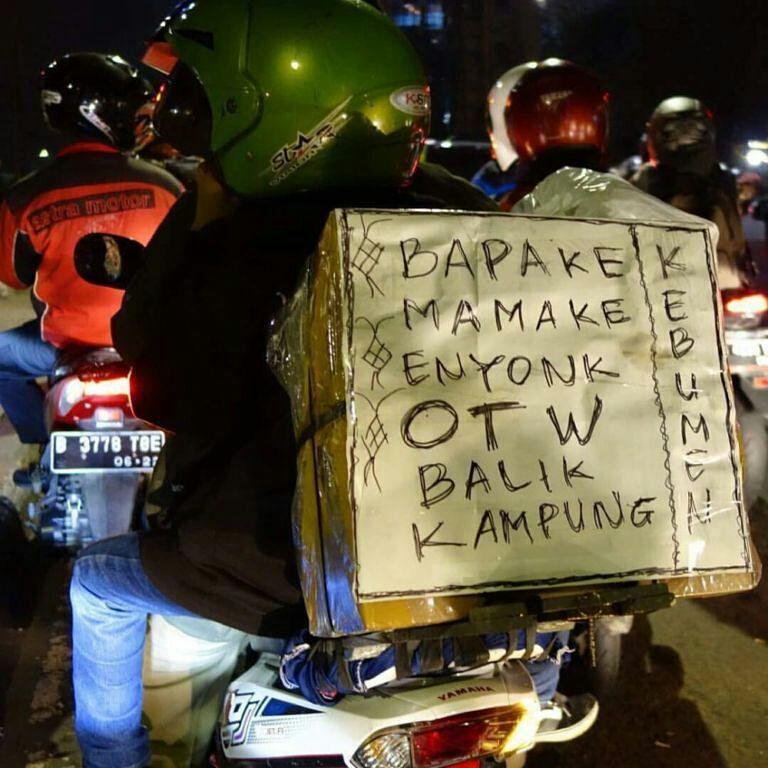 BAPAKE
MAMAKE
ENYONK
OTW
BALIK
KAMPUNG
KEBUMEN
setra motor
B 3778 TOE
06·2
STAR
YAMAHA